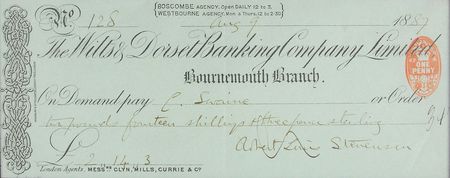 BOSCOMBE AGENCY. Open DAILY 12 to 3.
WESTBOURNE AGENCY. Mon & Thurs. 12 to 2.30
No 128 Aug 9 1887
The Wilts & Dorset Banking Company Limited.
Bournemouth Branch.
ONE PENNY
On Demand pay C. Swaine or Order
two pounds fourteen shillings & three pence sterling
£ 2.14.3
Robert Louis Stevenson
London Agents, MESSRS GLYN, MILLS, CURRIE & Co